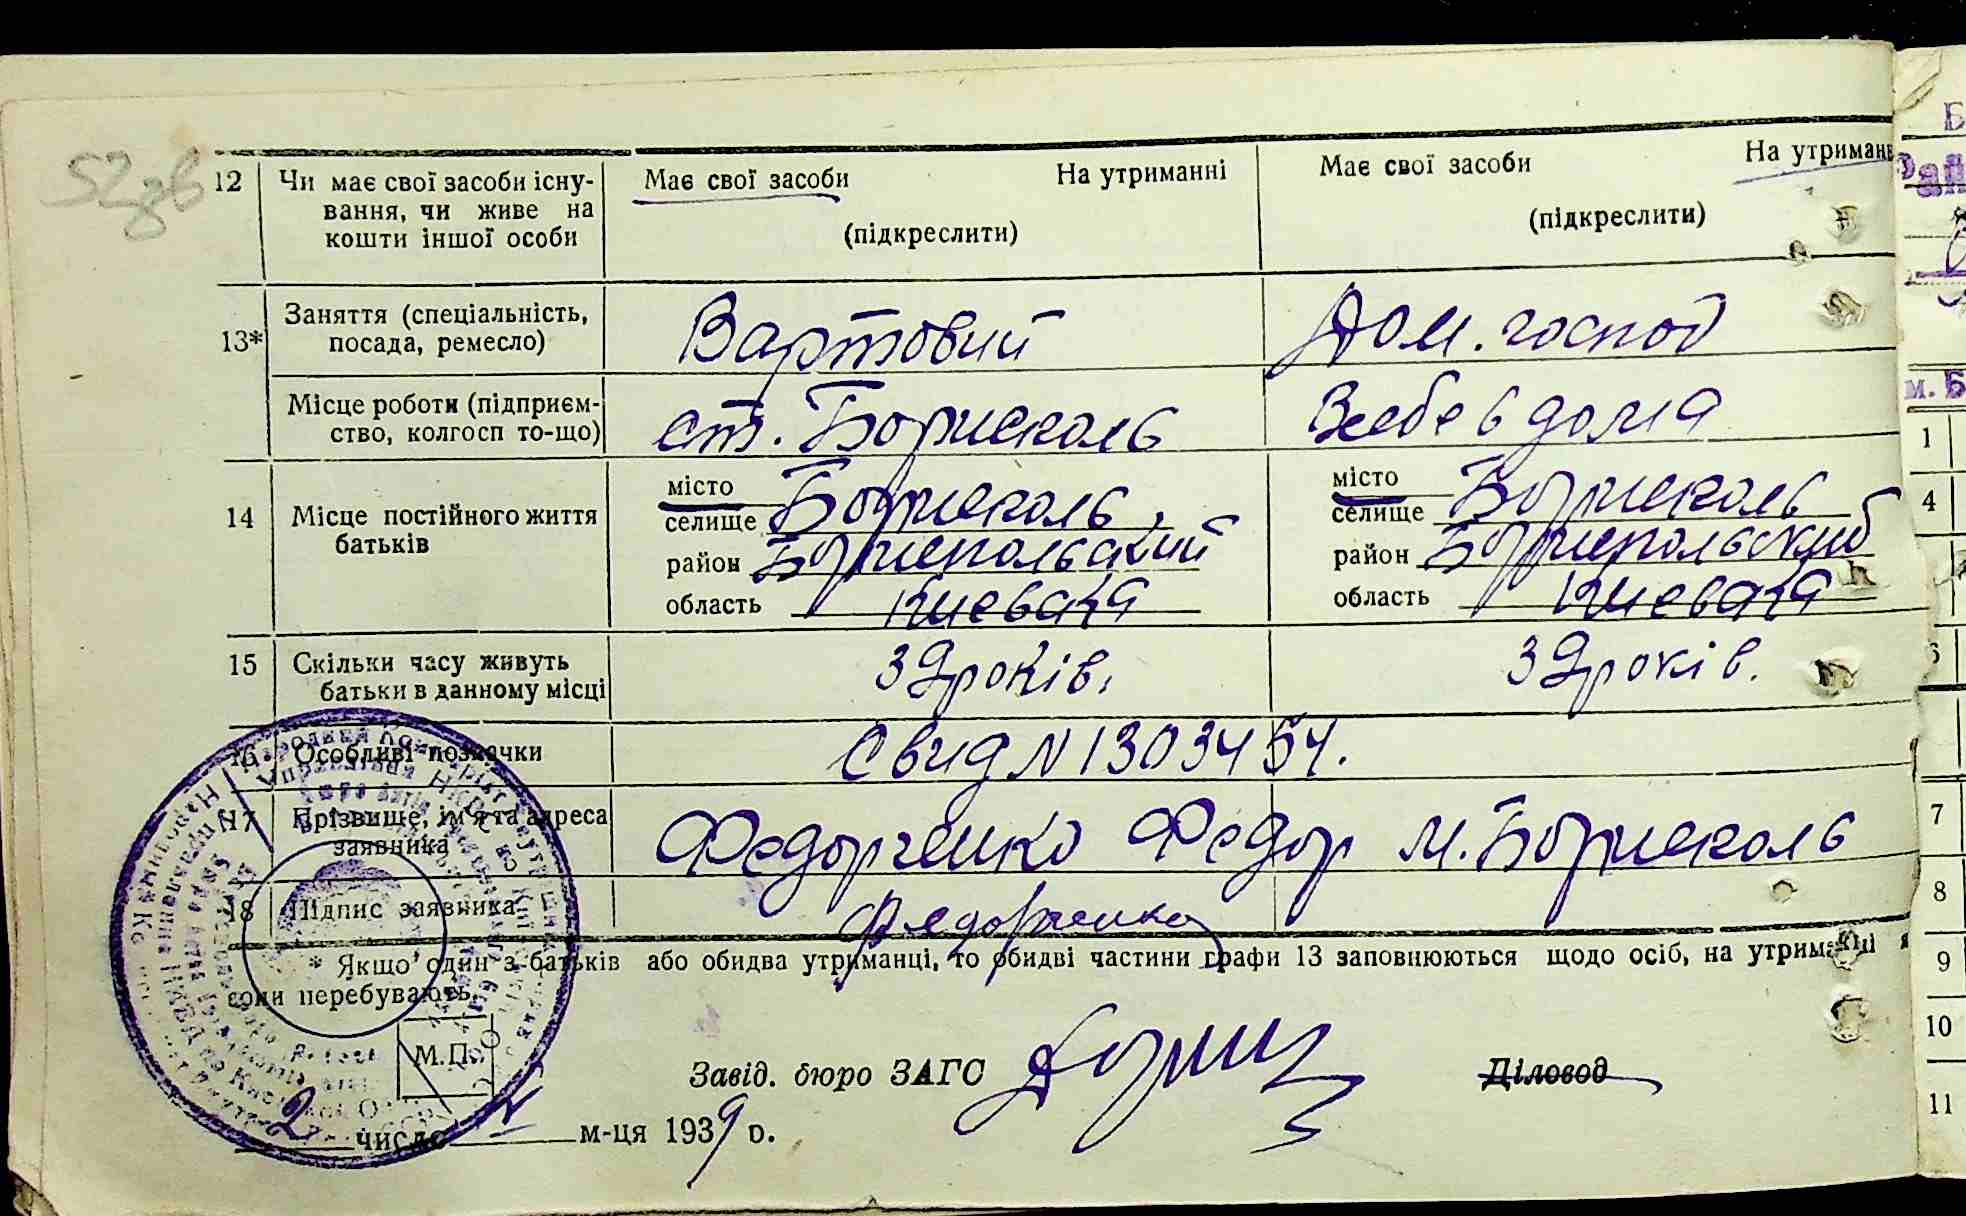 52 зв
12 Чи має свої засоби існу- Має свої засоби На утриманні Має свої засоби На утриман
вання, чи живе на (підкреслити) (підкреслити)
кошти іншої особи
13* Заняття (спеціальність, Вартовий Дом. господ
посада, ремесло)
Місце роботи (підприєм- ст. Борисполь в дома
ство, колгосп то-що)
14 Місце постійного життя місто Борисполь, місто Борисполь
батьків селище селище
район Бориспольский район Бориспольский
область Киевска область Киевска
15 Скільки часу живуть 39 років. 39 років.
батьки в данному місці
16 Особливі позначки Свид N 1303454.
17 Прізвище, ім'я та адреса Федорченко Федор м. Борисполь
заявника
18 Підпис заявника Федорченко
* Якщо один з батьків або обидва утриманці, то обидві частини графи 13 заповнюються щодо осіб, на утриманні я
вони перебувають.
М.П.
Завід. бюро ЗАГС Діловод
2 число м-ця 1939 р.
Б
Рай
м. Б
1
4
7
8
9
10
11